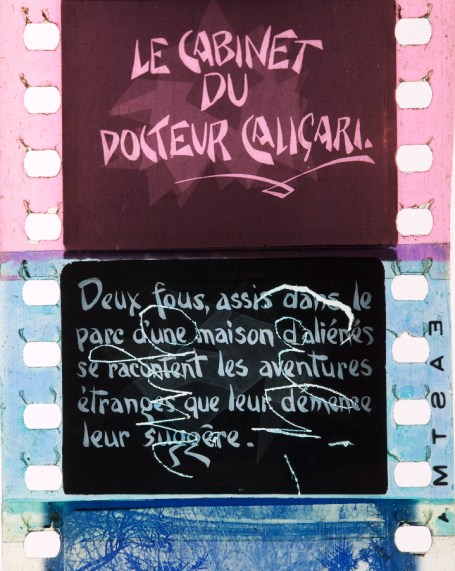 LE CABINET
DU
DOCTEUR CALIGARI.
Deux fous, assis dans le
parc d'une maison d'aliénés
se racontent les aventures
étranges que leur démence
leur suggère.
EASTMA